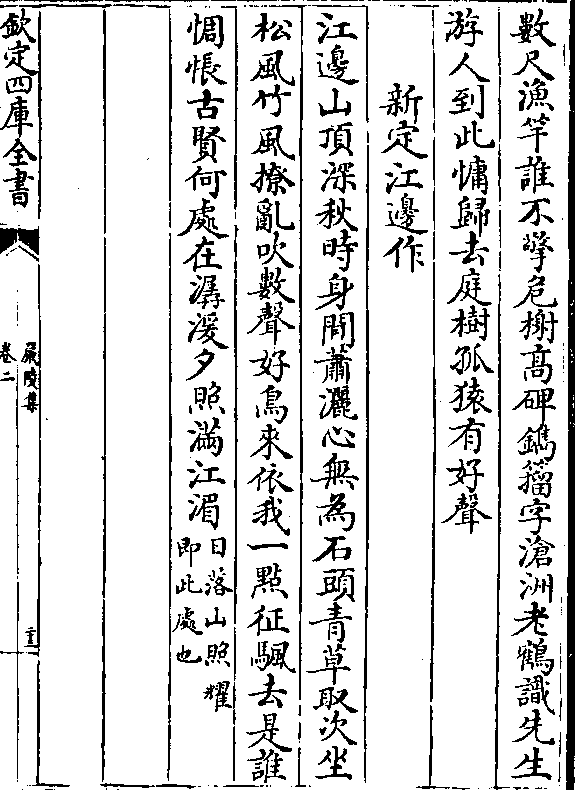 數尺漁竿誰不擎危榭高碑鐫籀字滄洲老鶴識先生
游人到此慵歸去庭樹孤猿有好聲
新定江邊作
江邊山頂深秋時身閒蕭灑心無為石頭青草取次坐
松風竹風撩亂吹數聲好鳥來依我一點征颿去是誰
惆悵古賢何處在潺湲夕照滿江湄日落山照耀
即此處也
欽定四庫全書
嚴陵集
卷二